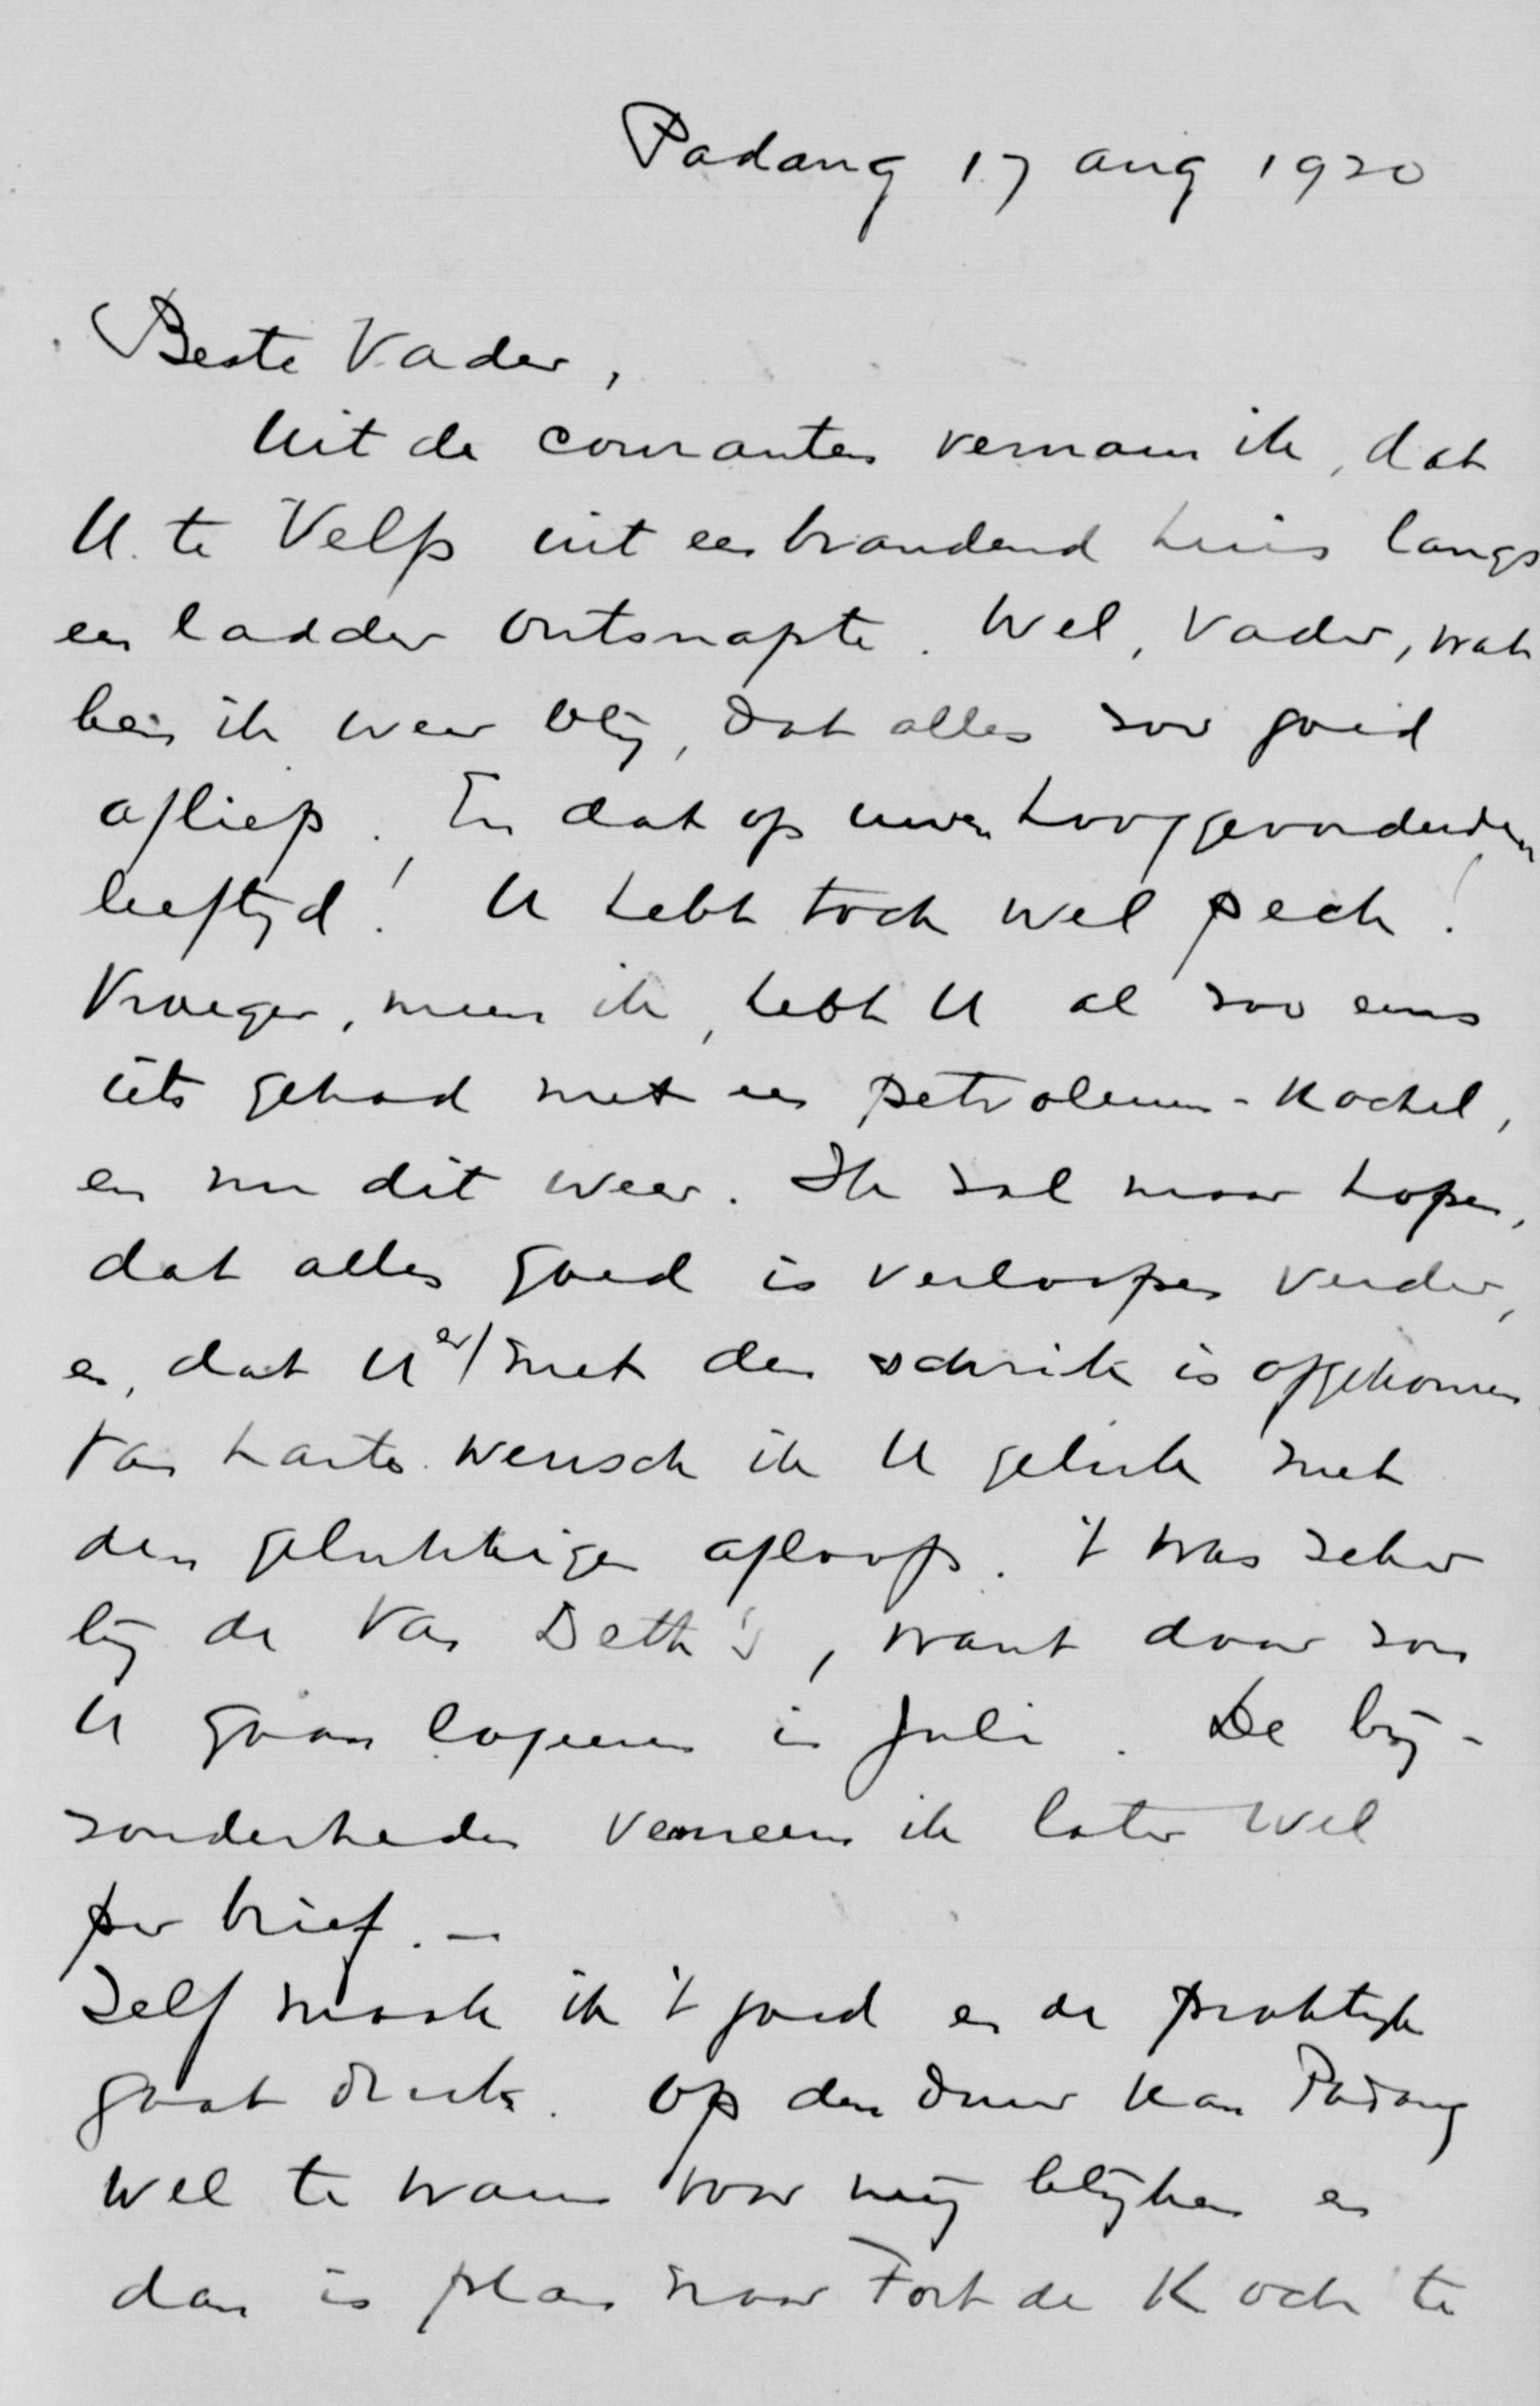 Padang 17 aug 1920
Beste Vader,
Uit de couranten vernam ik, dat
U te Velp uit een brandend huis langs
een ladder ontsnapte. Wel, Vader, wat
ben ik weer blij, dat alles zoo goed
afliep. En dat op uwen hooggevorderden
leeftijd! U hebt toch wel pech!
Vroeger, meen ik, hebt U al zoo eens
iets gehad met een petroleum-kachel,
en nu dit weer. Ik zal maar hopen,
dat alles goed is verloopen verder,
en, dat U er/ met den schrik is afgekomen.
Van harte wensch ik U geluk met
den gelukkigen afloop. 't was zeker
bij de Van Deth's, want daar zou
U gaan logeeren in Juli. De bij-
zonderheden verneem ik later wel
per brief. —
Zelf maak ik 't goed en de praktijk
gaat druk. Op den duur kan Padang
wel te warm voor mij blijken en
dan is plan naar Fort de Kock te